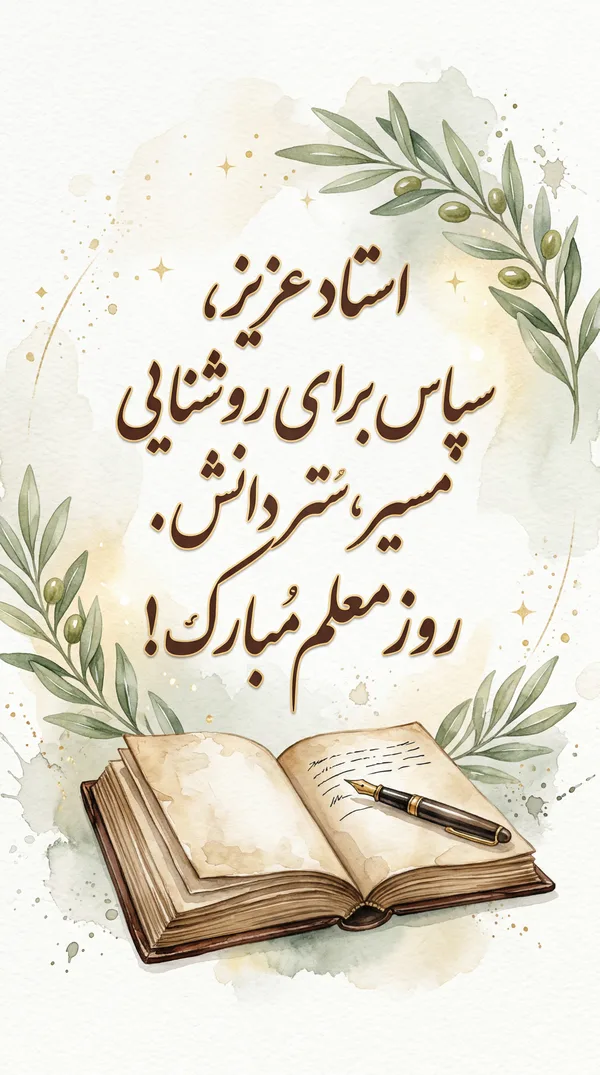 استاد عزیز،
سپاس برای روشنایی
مسیر، سُتر دانش.
روز معلم مُبارک!